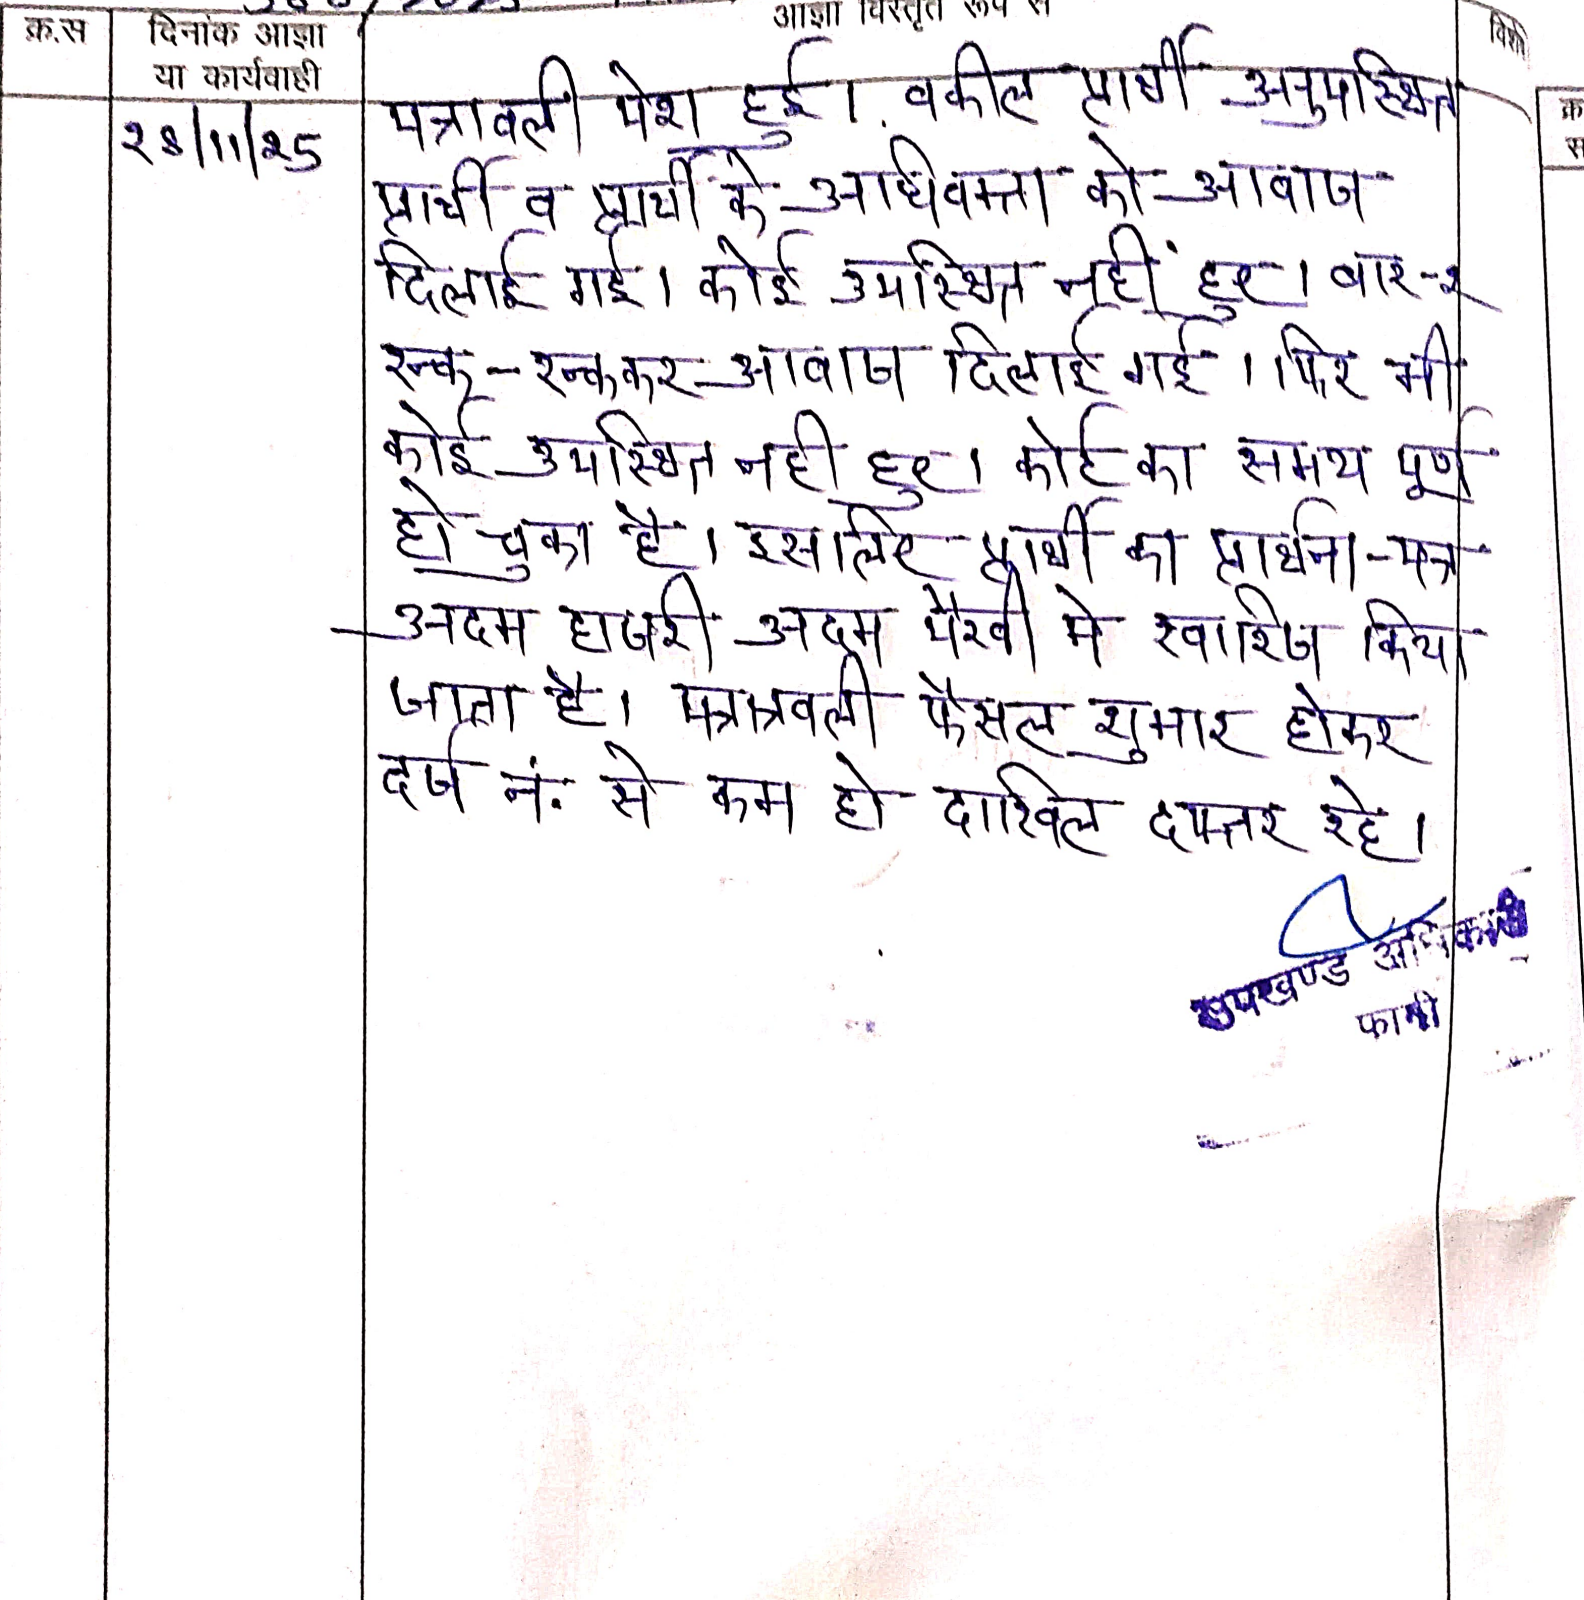 आज्ञा विस्तृत रूप से
क्र.स दिनांक आज्ञा
या कार्यवाही
पत्रावली पेश हुई। वकील प्रार्थी अनुपस्थित
प्रार्थी व प्रार्थी के अधिवक्ता को आवाज
दिलाई गई। कोई उपस्थित नहीं हुए। बार-२
रूक-रूककर आवाज दिलाई गई। फिर भी
कोई उपस्थित नही हुए। कोर्ट का समय पूर्ण
हो चुका है। इसलिए प्रार्थी का प्रार्थना-पत्र
अदम हाजरी अदम पैरवी मे खारिज किया
जाता है। पत्रात्रवली फैसल शुमार होकर
दर्ज नं. से कम हो दाखिल दफ्तर रहे।
उपखण्ड अधिकारी
फागी